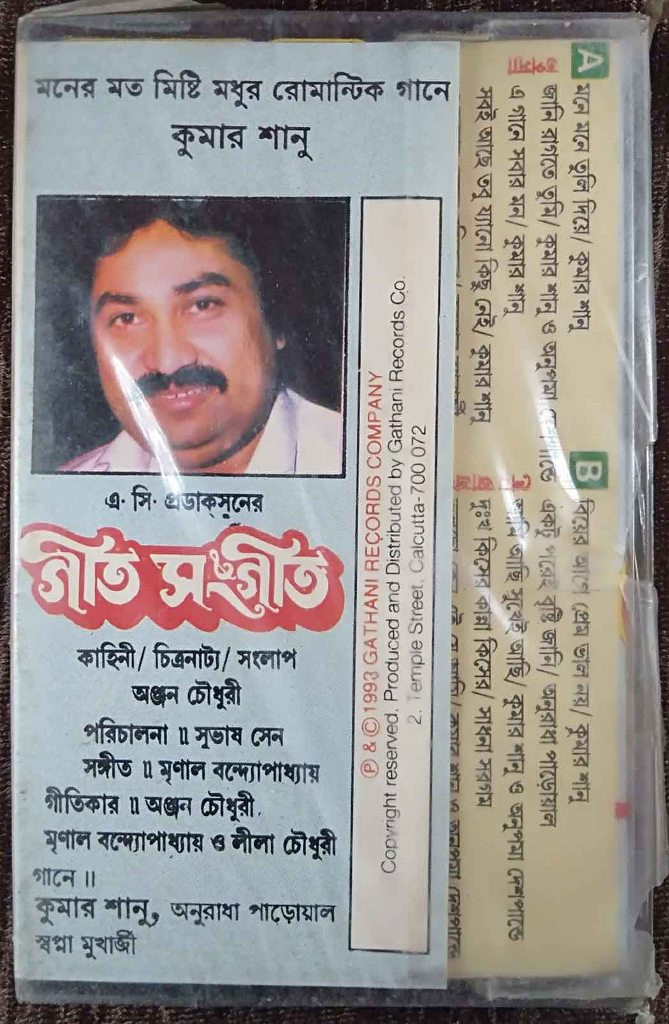 মনের মত মিষ্টি মধুর রোমান্টিক গানে
কুমার শানু
এ· সি· প্রডাকসনের
গীত সংগীত
কাহিনী/ চিত্রনাট্য/ সংলাপ
অঞ্জন চৌধুরী
পরিচালনা ॥ সুভাষ সেন
সঙ্গীত ॥ মৃণাল বন্দ্যোপাধ্যায়
গীতিকার ॥ অঞ্জন চৌধুরী,
মৃণাল বন্দ্যোপাধ্যায় ও লীলা চৌধুরী
গানে ॥
কুমার শানু, অনুরাধা পাড়োয়াল
স্বপ্না মুখার্জী
Ⓟ & Ⓒ 1993 GATHANI RECORDS COMPANY
Copyright reserved. Produced and Distributed by Gathani Records Co.
2, Temple Street, Calcutta-700 072
A
মনে মনে তুলি দিয়ে/ কুমার শানু
জানি রাগতে তুমি/ কুমার শানু ও অনুপমা
এ গানে সবার মন/ কুমার শানু
সবই আছে তবু য্যানো কিছু নেই/ কুমার শানু
B
বিয়ের আগে প্রেম ভাল নয়/ কুমার শানু
একটু পরেই বৃষ্টি জানি/ অনুরাধা পাড়োয়াল
আমি আছি সুখেই আছি/ কুমার শানু ও অনুপমা দেশপাণ্ডে
দুঃখ কিসের কান্না কিসের/ সাধনা সারগাম